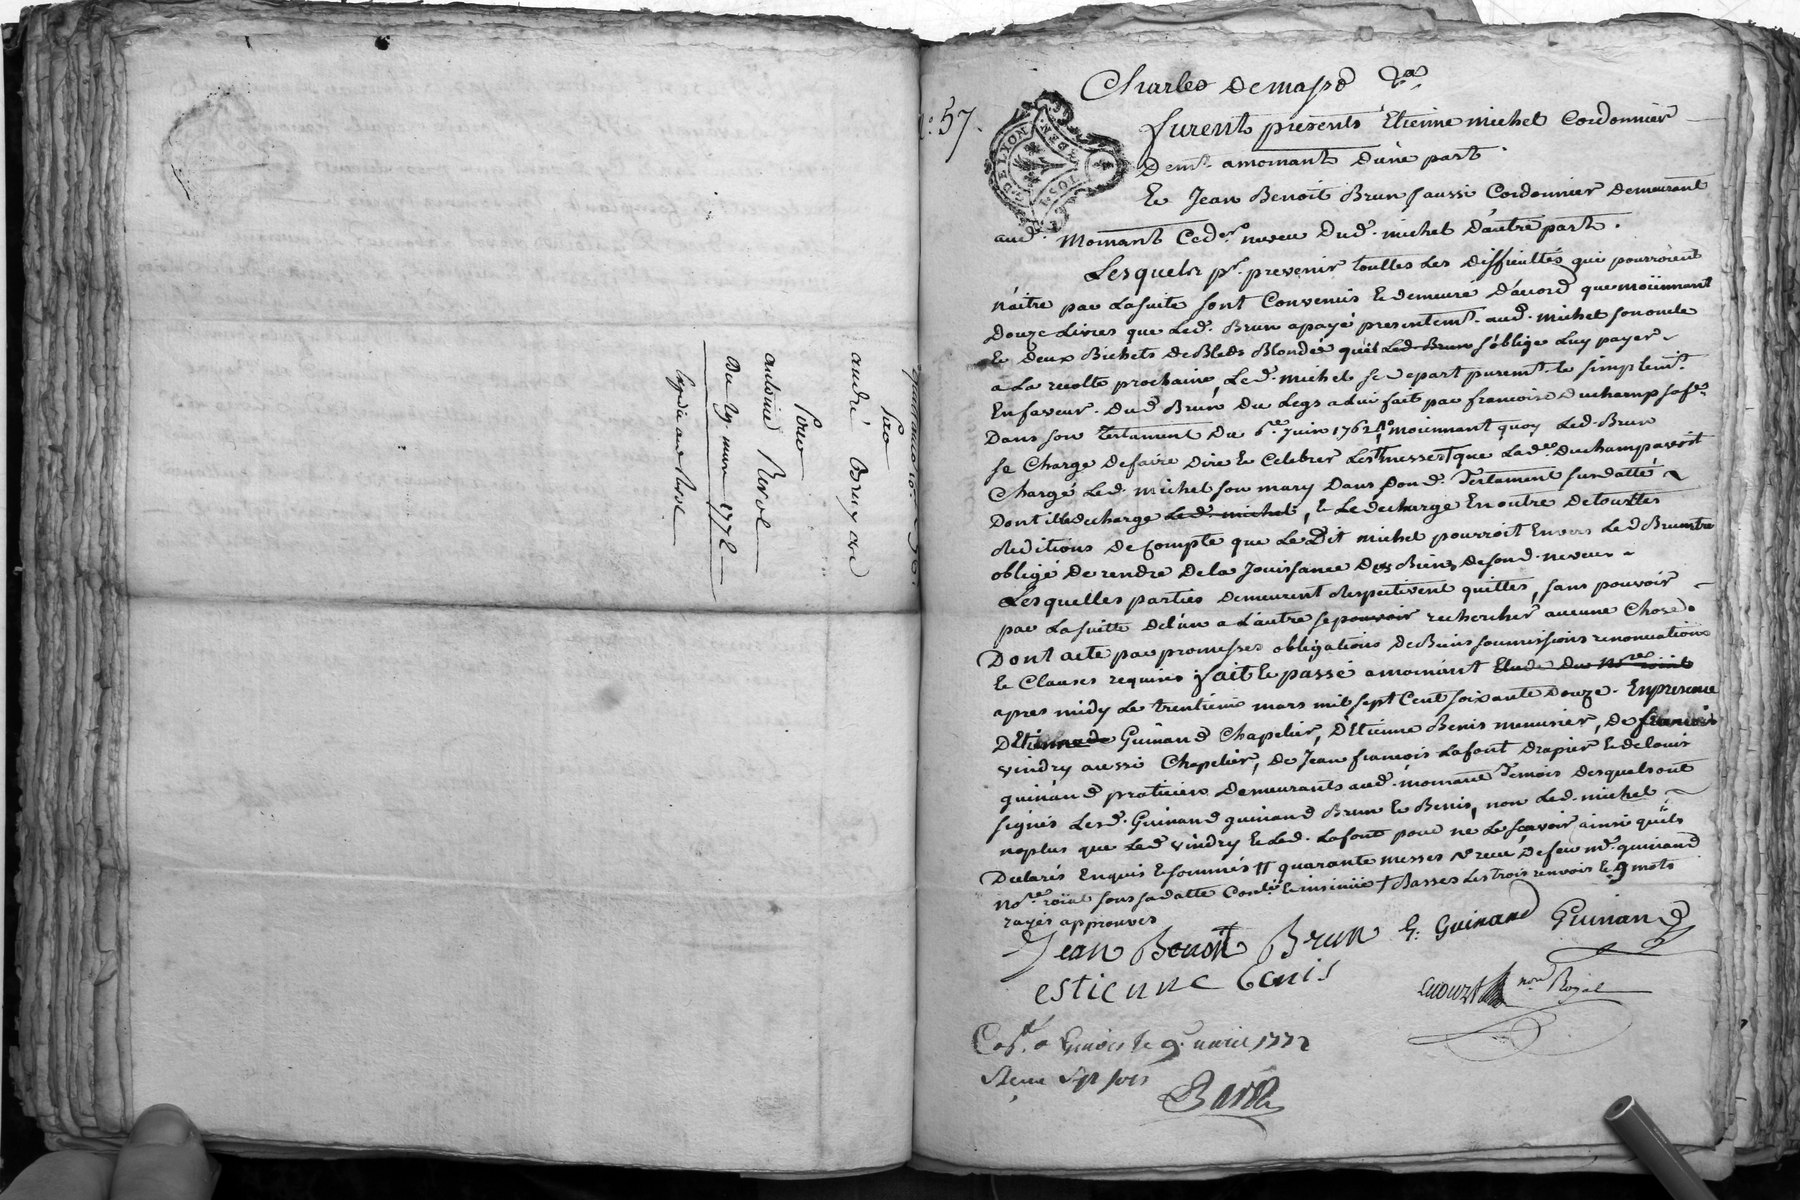 pour
andré Bruyere
pour
antoine Revol
Du 29 mars 1772
57.
GEN. DE LYON
Furent presents Etienne michel Cordonnier
Demt. amornant D'une part
Et Jean Benoit Brun aussi Cordonnier demeurant
aud. Mornant neveu Dud. michel D'autre part.
Lesquels pr. prevenir touttes Les difficultés qui pourroient
náitre par Lasuite sont Convenus Et demeuré D'acord que moiiennant
Douze Livres que Led. Brun a payé presentemt. aud. michel son oncle
Et deux Bichets De Bleds Blondés quil Led. Brun s'oblige Luy payer
a La recolte prochaine, Led. michel se depart puremt. Et simplemt.
En faveur Dud. Brun Du Legs a lui fait par francoise Duchamp safe.
Dans son Testament Du 6e. Juin 1762 moiennant quoy Led. Brun
se Charge de faire dire Et Celebrer Les messes que Lade. Duchamp avoit
Chargé Led. michel son mary Dans Sond. Testament susdatté
Dont il Le decharge Led. michel, Et Le decharge En outre De touttes
redditions de Compte que Le Dit michel pourroit Envers Led. Brun Etre
obligé De rendre De la Jouissance Des Biens de sond. neveu
Lesquelles parties Demeurent respectivemt quittes, sans pouvoir
par La suitte De l'un a L'autre se pouvoir rechercher aucune Chose.
Dont acte par promesses obligations De Biens soumissions renonciations
Et Clauses requises fait Et passé a mornant Etude du Nore. roial
apres midy Le trentieme mars mil sept Cent soixante Douze. En presence
D'Etienne de Guinand Chapelier, D'Etienne Benis menusier, De francois
vindry aussi Chapelier, De Jean francois Lafont Drapier Et de Louis
guinand praticien Demeurants aud. mornant Temois Desquels ont
signés Lesd. Guinand guinand Brun Et Benis, non Led. michel
non plus que Led. vindry Et Led. Lafont pour ne Le scavoir ainsi quils
Declarés Enquis Et sommés quarante messes receu De feu me. guinand
Nore. roial sous sa datte Conlé. Et insinué Basses Les trois renvois Et 9 mots
rayés approuvés
Jean Benoit Brun G: Guinand Guinand
estienne Benis
nore Royal
le 9. avril 1772
Recu sept sols